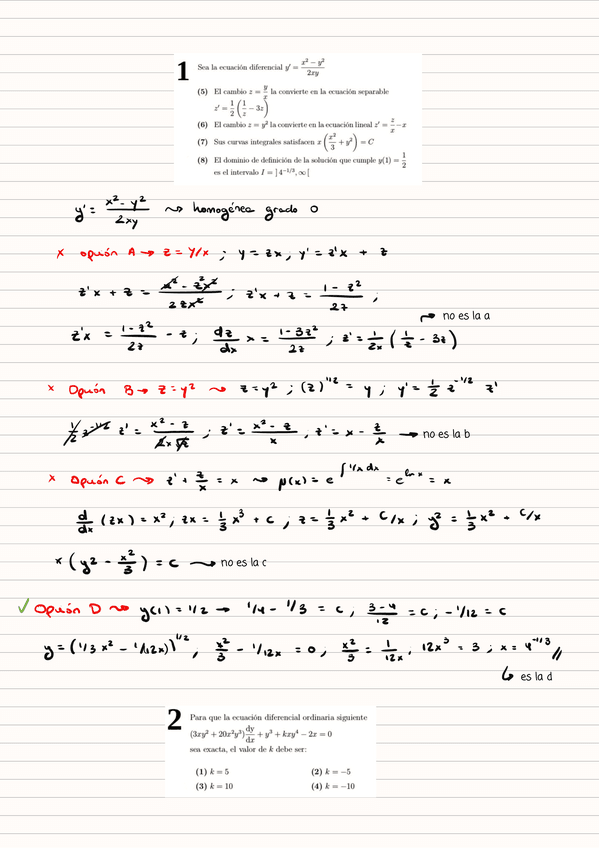 1 Sea la ecuación diferencial y' = (x² − y²)/(2xy)
(5) El cambio z = y/x la convierte en la ecuación separable
z' = 1/2 (1/z − 3z)
(6) El cambio z = y² la convierte en la ecuación lineal z' = z/x − x
(7) Sus curvas integrales satisfacen x (x²/3 + y²) = C
(8) El dominio de definición de la solución que cumple y(1) = 1/2
es el intervalo I = ]4^(−1/3), ∞[
y' = (x² − y²)/(2xy) ⇝ homogénea grado 0
× opción A → z = y/x ; y = zx, y' = z'x + z
z'x + z = (x² − z²x²)/(2zx²) ; z'x + z = (1 − z²)/(2z) ;
→ no es la a
z'x = (1 − z²)/(2z) − z ; dz/dx x = (1 − 3z²)/(2z) ; z' = 1/(2x) (1/z − 3z)
× Opción B → z = y² ⇝ z = y² ; (z)^(1/2) = y ; y' = 1/2 z^(−1/2) z'
1/2 z^(−1/2) z' = (x² − z)/(2x√z) ; z' = (x² − z)/x , z' = x − z/x → no es la b
× Opción C ⇝ z' + z/x = x ⇝ μ(x) = e^(∫1/x dx) = e^(ln x) = x
d/dx (zx) = x² ; zx = 1/3 x³ + c ; z = 1/3 x² + c/x ; y² = 1/3 x² + c/x
x (y² − x²/3) = c → no es la c
✓ Opción D ⇝ y(1) = 1/2 → 1/4 − 1/3 = c , (3 − 4)/12 = c ; −1/12 = c
y = (1/3 x² − 1/12x)^(1/2) , x²/3 − 1/12x = 0 , x²/3 = 1/12x , 12x³ = 3 ; x = 4^(−1/3) //
↳ es la d
2 Para que la ecuación diferencial ordinaria siguiente
(3xy² + 20x²y³) dy/dx + y³ + kxy⁴ − 2x = 0
sea exacta, el valor de k debe ser:
(1) k = 5 (2) k = −5
(3) k = 10 (4) k = −10